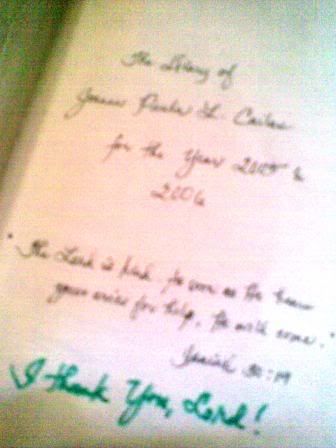 The Diary of
Paula L.
for the Year 2005 &
2006
"The Lord is kind. As soon as He hears
your cries for help, He will come."
Isaiah 30:19
I thank You, Lord!